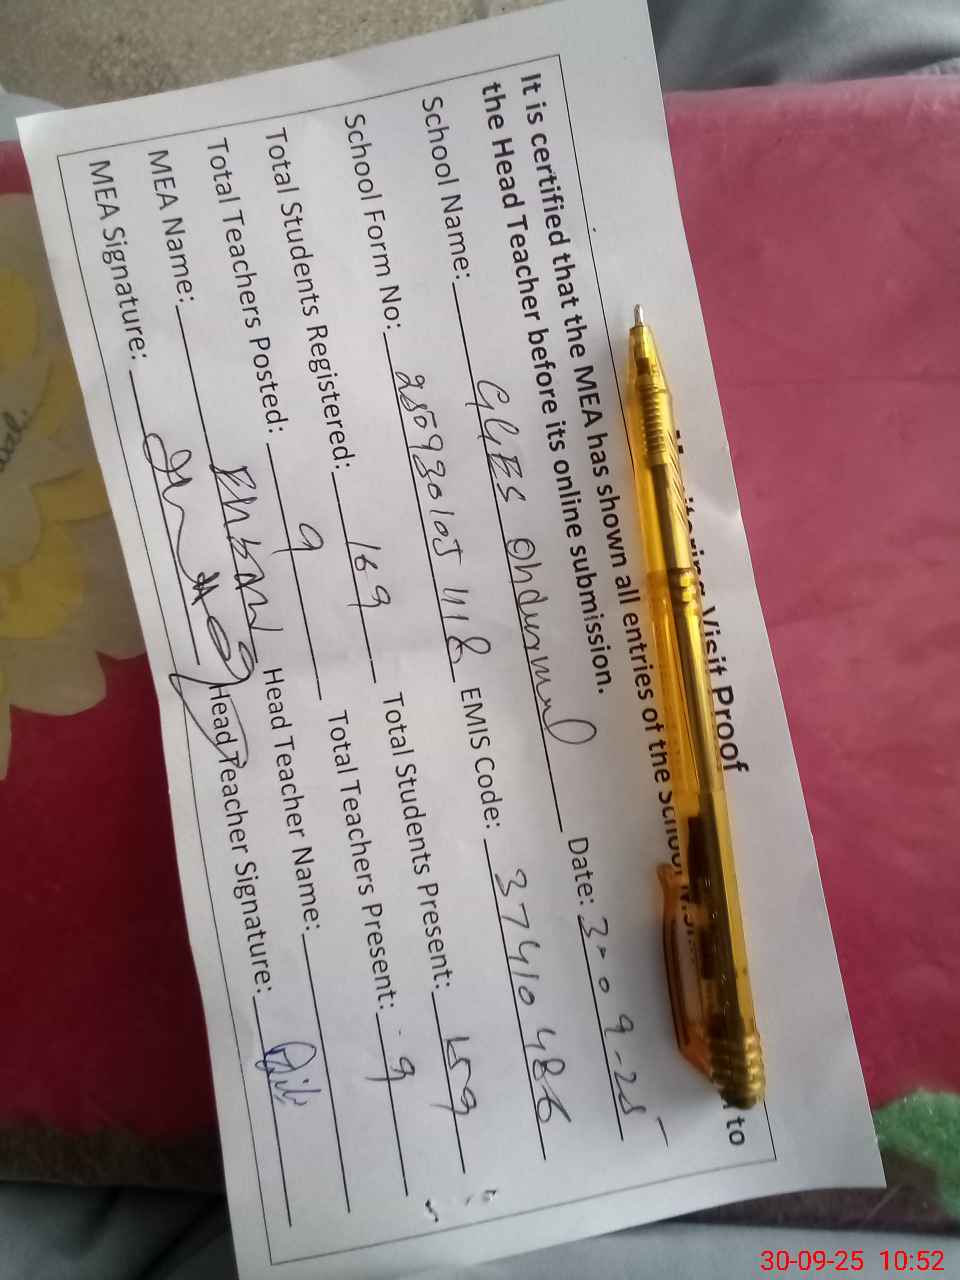 Visit Proof
It is certified that the MEA has shown all entries of the to
the Head Teacher before its online submission.
School Name: GGES Date: 30-09-25
School Form No: 250930105418 EMIS Code: 37410486
Total Students Registered: 169 Total Students Present: 159
Total Teachers Posted: 9 Total Teachers Present: 9
MEA Name: Head Teacher Name:
MEA Signature: Head Teacher Signature:
30-09-25 10:52